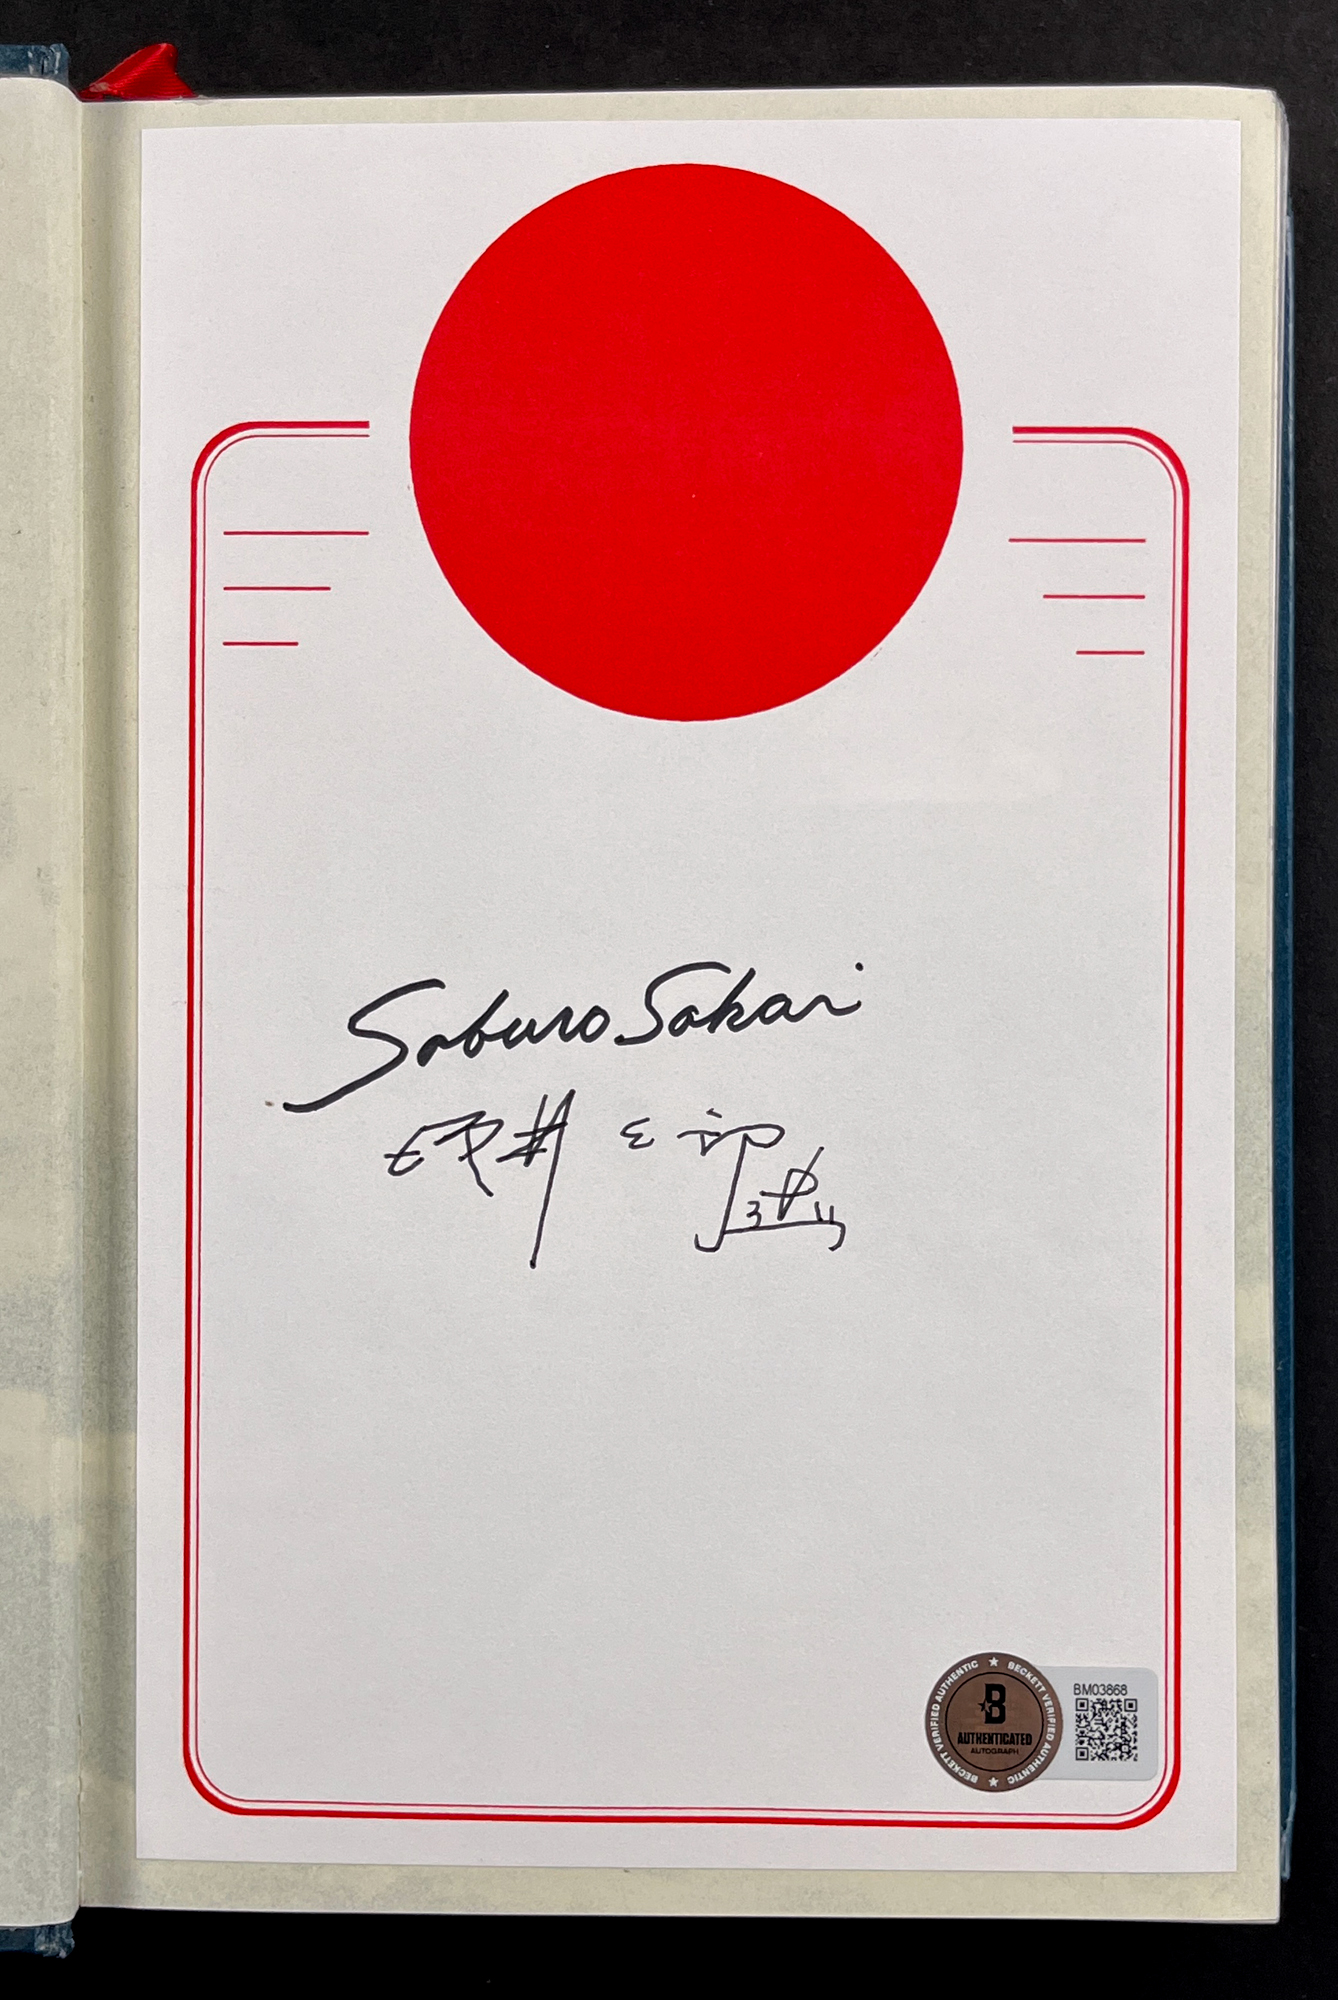 Saburo Sakai
坂井三郎
BECKETT VERIFIED AUTHENTIC ★ BECKETT VERIFIED AUTHENTIC ★
B
AUTHENTICATED
AUTOGRAPH
BM03868